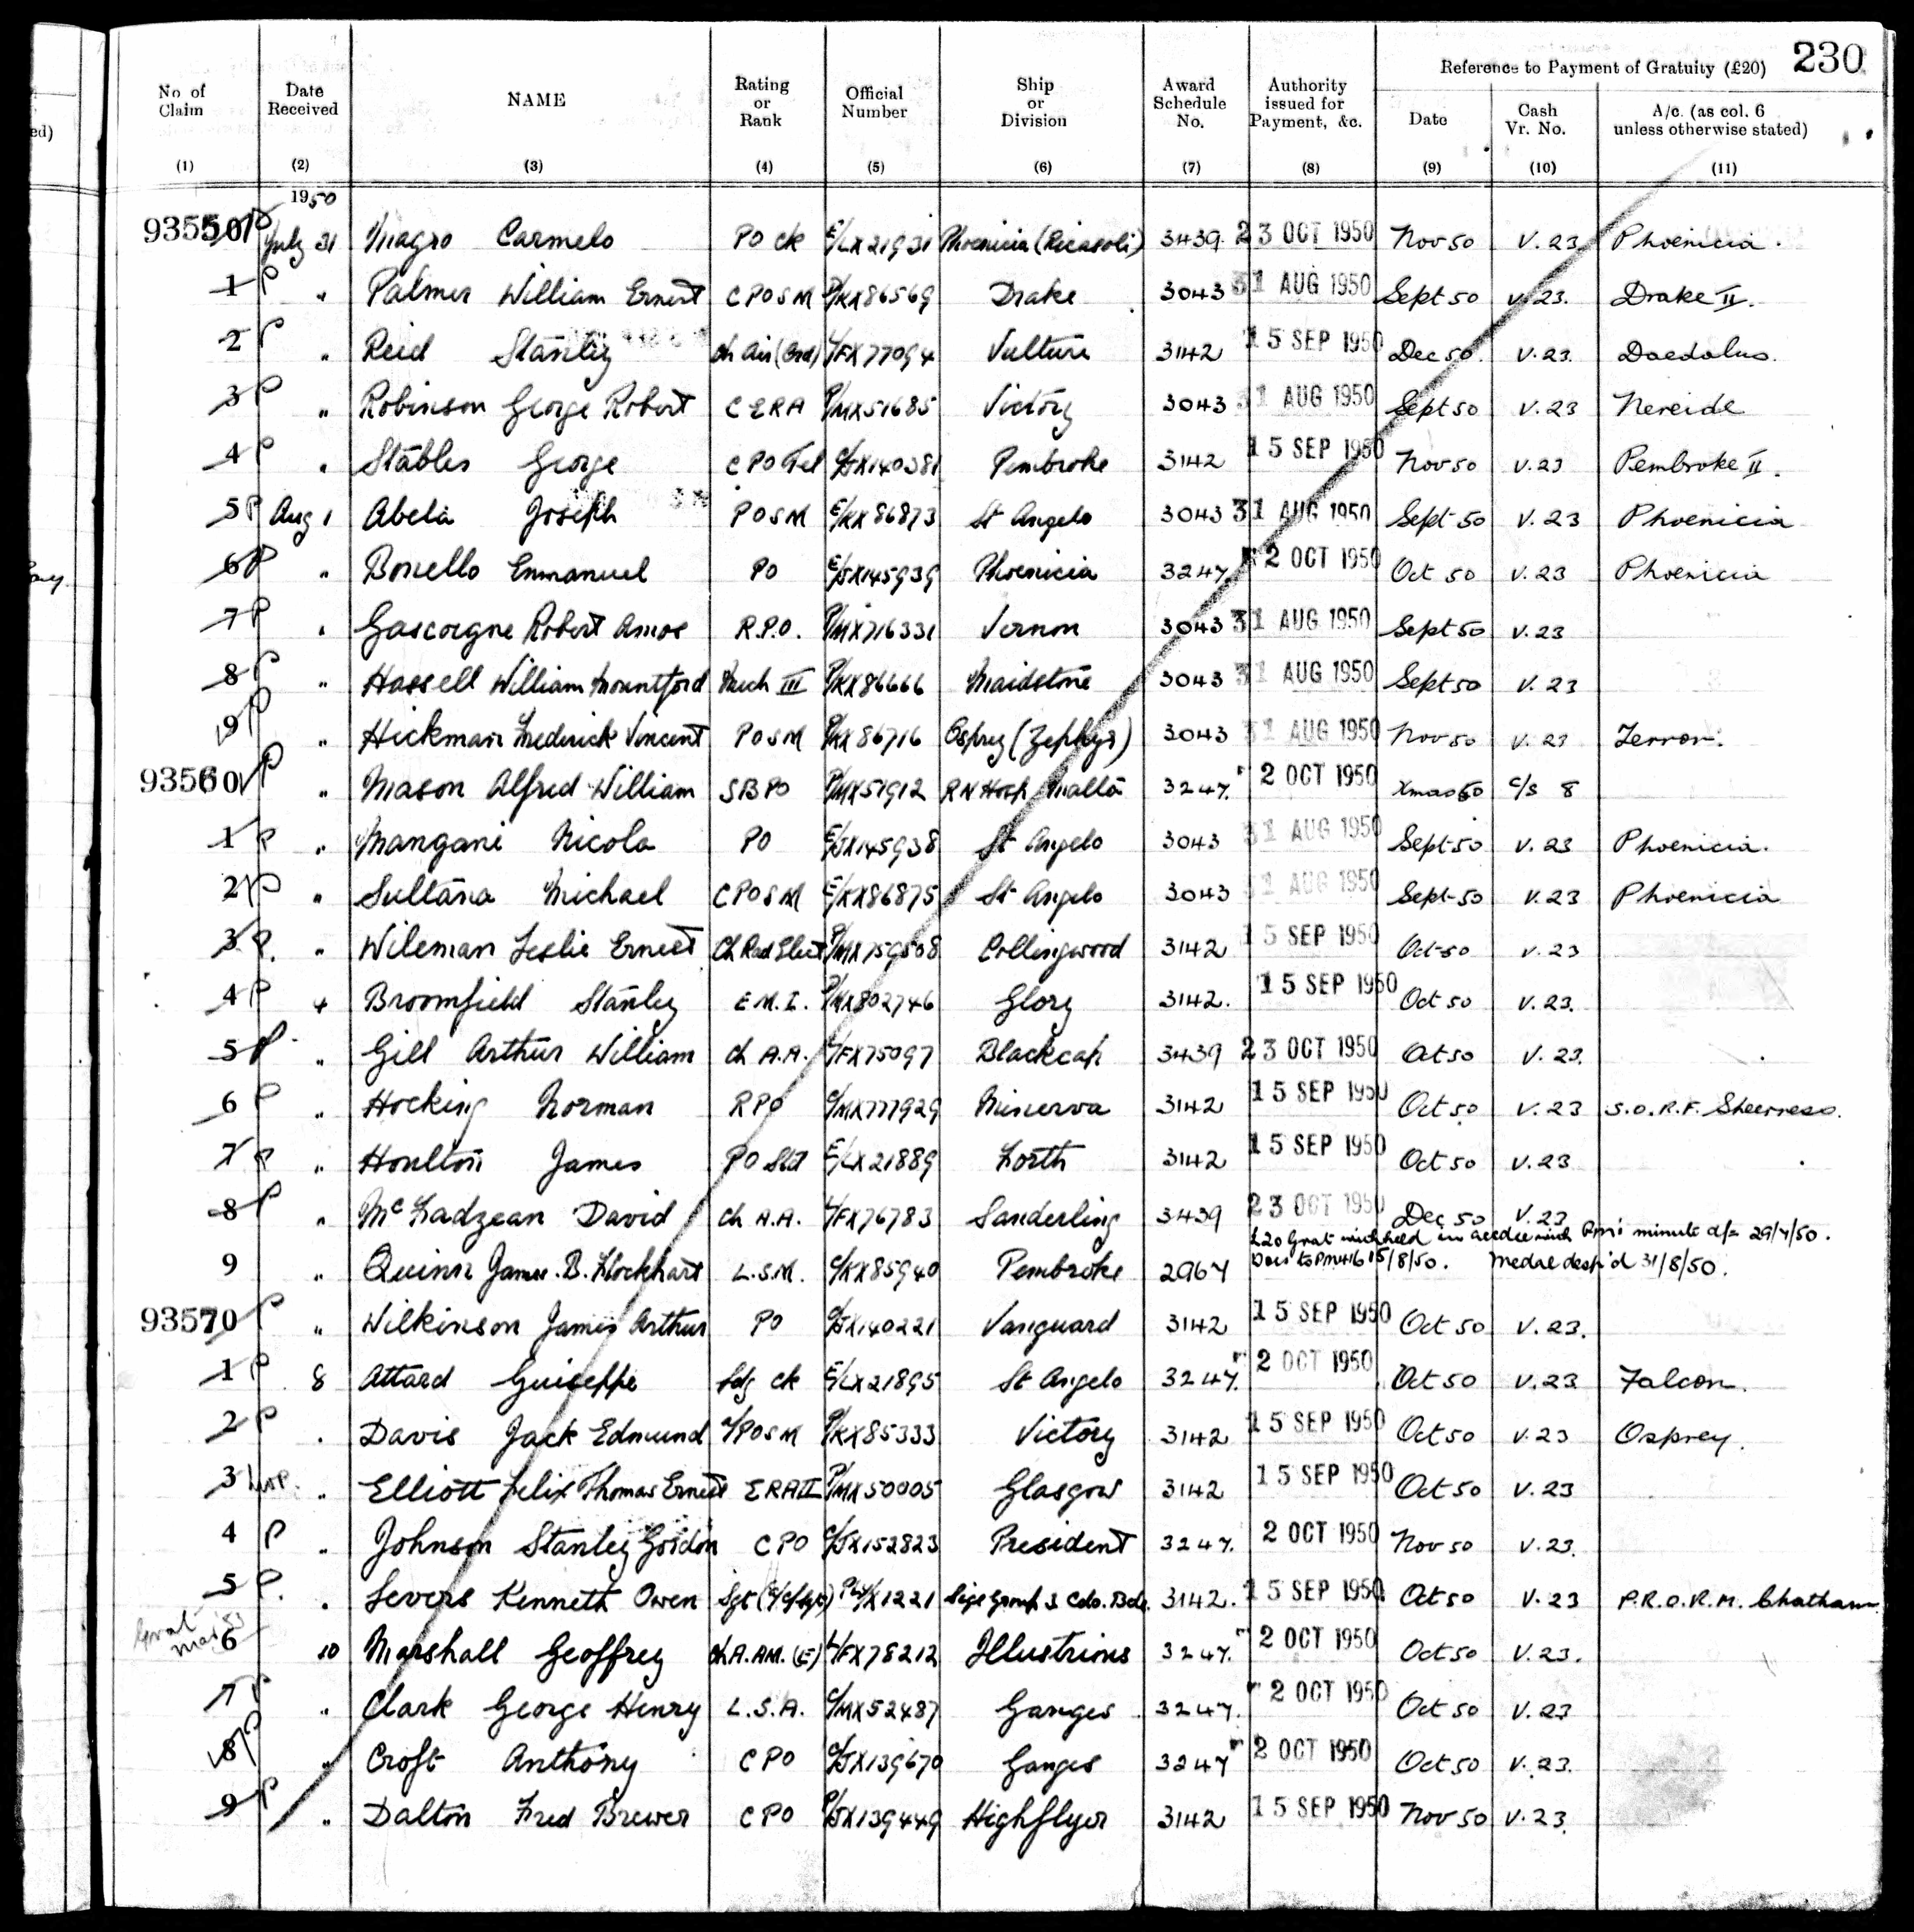 230
Reference to Payment of Gratuity (£20)
No of Claim Date Received NAME Rating or Rank Official Number Ship or Division Award Schedule No. Authority issued for Payment, &c. Date Cash Vr. No. A/c. (as col. 6 unless otherwise stated)
ed)
(1) (2) (3) (4) (5) (6) (7) (8) (9) (10) (11)
1950
93550 P July 31 Magro Carmelo PO ck E/LX21931 Phoenicia (Ricasoli) 3439 23 OCT 1950 Nov 50 V.23 Phoenicia.
1 P " Palmer William Ernest CPOSM P/KX86569 Drake 3043 31 AUG 1950 Sept 50 V.23. Drake II.
2 P " Reid Stanley Ch Air (Ord) L/FX77094 Vulture 3142 15 SEP 1950 Dec 50. V.23. Daedalus.
3 P " Robinson George Robert CERA P/MX51685 Victory 3043 31 AUG 1950 Sept 50 V.23 Nereide
4 P " Stables George CPO Tel C/JX140381 Pembroke 3142 15 SEP 1950 Nov 50 V.23 Pembroke II.
5 P Aug 1 Abela Joseph POSM E/KX86873 St Angelo 3043 31 AUG 1950 Sept 50 V.23 Phoenicia
6 P " Bonello Emmanuel PO E/JX145939 Phoenicia 3247 2 OCT 1950 Oct 50 V.23 Phoenicia
7 P " Gascoigne Robert Amos R.P.O. P/MX716331 Vernon 3043 31 AUG 1950 Sept 50 V.23
8 P " Hassell William Mountford Mech III P/KX86666 Maidstone 3043 31 AUG 1950 Sept 50 V.23
9 P " Hickman Frederick Vincent POSM P/KX86716 Osprey (Zephyr) 3043 31 AUG 1950 Nov 50 V.23 Terror.
93560 P " Mason Alfred William SBPO P/MX51912 RN Hosp Malta 3247. 2 OCT 1950 Xmas 50 C/S 8
1 P " Mangani Nicola PO E/JX145938 St Angelo 3043 31 AUG 1950 Sept 50 V.23 Phoenicia.
2 P " Sultana Michael CPOSM E/KX86875 St Angelo 3043 31 AUG 1950 Sept 50 V.23 Phoenicia
3 P. " Wileman Leslie Ernest Ch Rad Elect P/MX759508 Collingwood 3142 15 SEP 1950 Oct 50 V.23
4 P 4 Broomfield Stanley E.M.I. P/MX802746 Glory 3142. 15 SEP 1950 Oct 50 V.23.
5 P " Gill Arthur William Ch A.A. L/FX75097 Blackcap 3439 23 OCT 1950 Oct 50 V.23.
6 P " Hocking Norman RPO C/MX777929 Minerva 3142 15 SEP 1950 Oct 50 V.23 S.O.R.F. Sheerness.
7 P " Houlton James PO Std E/LX21889 Forth 3142 15 SEP 1950 Oct 50 V.23
8 P " McFadzean David Ch A.A. L/FX76783 Sanderling 3439 23 OCT 1950 Dec 50 V.23
£20 Grat withheld in accdce with minute d/- 29/7/50.
9 " Quinn James. B. Lockhart L.S.M. C/KX85940 Pembroke 2967 15/8/50. Medal desp'd 31/8/50.
93570 P " Wilkinson James Arthur PO C/JX140221 Vanguard 3142 15 SEP 1950 Oct 50 V.23.
1 P 8 Attard Guiseppe Ldg ck E/LX21895 St Angelo 3247. 2 OCT 1950 Oct 50 V.23 Falcon.
2 P " Davis Jack Edmund A/POSM P/KX85333 Victory 3142 15 SEP 1950 Oct 50 V.23 Osprey.
3 " Elliott Felix Thomas Ernest ERA II P/MX50005 Glasgow 3142 15 SEP 1950 Oct 50 V.23
4 P " Johnson Stanley Gordon CPO C/JX152823 President 3247. 2 OCT 1950 Nov 50 V.23.
5 P. " Severs Kenneth Owen Sgt Ply/X1221 Sigs Group 3 Cdo. Bde. 3142. 15 SEP 1950 Oct 50 V.23 P.R.O.R.M. Chatham.
6 10 Marshall Geoffrey Ch A.AM. (E) L/FX78212 Illustrious 3247. 2 OCT 1950 Oct 50 V.23.
7 P " Clark George Henry L.S.A. C/MX52487 Ganges 3247. 2 OCT 1950 Oct 50 V.23
8 P " Croft Anthony CPO C/JX139670 Ganges 3247 2 OCT 1950 Oct 50 V.23.
9 P " Dalton Fred Brewer CPO P/JX139449 Highflyer 3142 15 SEP 1950 Nov 50 V.23.